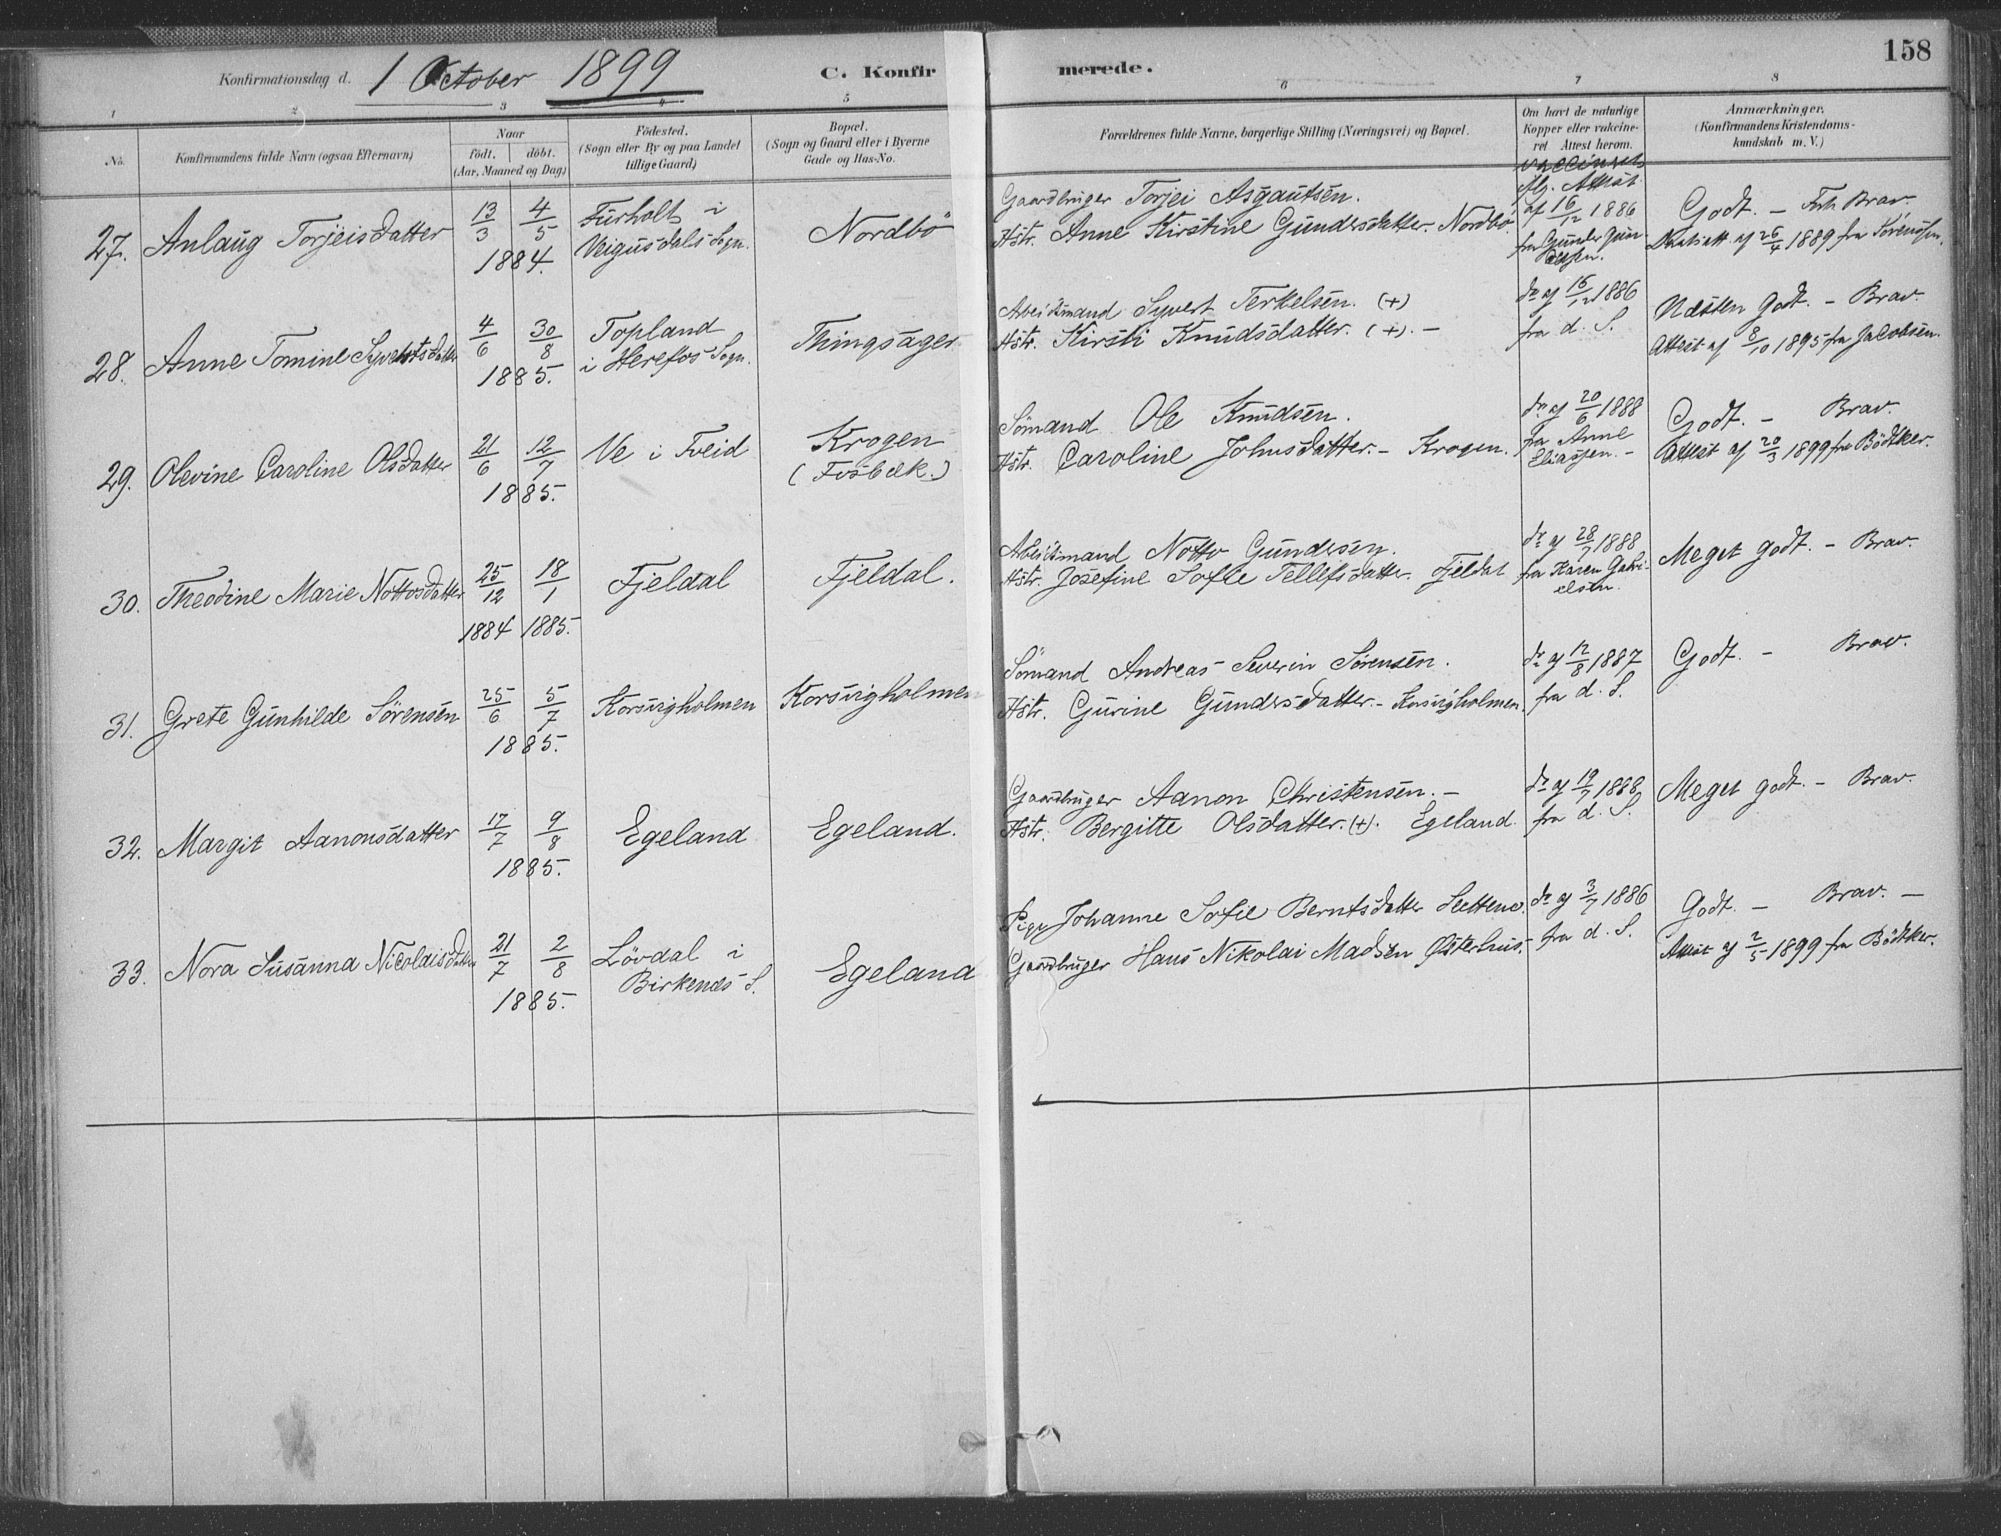 Konfirmationsdag d. 1 October 1899 C. Konfirmerede. 158
1 2 3 4 5 6 7 8
No. Konfirmandens fulde Navn (ogsaa Efternavn)
Naar
født. døbt.
(Aar, Maaned og Dag)
Fødested.
(Sogn eller By og paa Landet
tillige Gaard)
Bopæl.
(Sogn og Gaard eller i Byerne
Gade og Hus-No.
Forældrenes fulde Navne, borgerlige Stilling (Næringsvei) og Bopæl.
Om havt de naturlige
Kopper eller vakcine-
ret Attest herom.
Anmærkninger.
(Konfirmandens Kristendoms-
kundskab m. V.)
27. Anlaug Torjeisdatter
13/3 4/5
1884.
Furholt i
Veigusdals Sogn.
Nordbö
Gaardbruger Torjei Asgautsen.
Hstr. Anne Kirstine Gundersdatter. Nordbö.
Attest
af 16/12 1886
fra Gunder
Godt. – Brav.
af 26/4 1889 fra Sörenssen.
28. Anne Tomine Syvertsdatter
4/6 30/8
1885.
Topland
i Herefos Sogn.
Thingsager
Arbeidsmand Syvert Terkelsen. (+)
Hstr. Kirsti Knudsdatter. (+). –
do af 16/12 1886
fra d. S.
Næsten Godt. – Brav.
Attest af 8/10 1895 fra Jacobsen.
29. Olevine Caroline Olsdatter
21/6 12/7
1885.
Ve i Tveid
Krogen
(Fosbæk.)
Sömand Ole Knudsen.
Hstr. Caroline Johnsdatter. – Krogen.
do af 20/6 1888
fra Anne
Eliassen. –
Godt. – Brav.
Attest af 20/3 1899 fra Bödtker.
30. Theodine Marie Nottosdatter
25/12 18/1
1884 1885.
Fjeldal
Fjeldal.
Arbeidsmand Notto Gundersen.
Hstr. Josefine Sofie Tellefsdatter. Fjeldal
do af 28/7 1888
fra Karen Gabri-
elsen.
Meget godt. – Brav.
31. Grete Gunhilde Sörensen
25/6 5/7
1885.
Korsvigholmen
Korsvigholmen
Sömand Andreas Severin Sörensen.
Hstr. Gurine Gundersdatter. – Korsvigholmen.
do af 12/8 1887
fra d. S.
Godt. – Brav.
32. Margit Aanonsdatter
17/7 9/8
1885.
Egeland
Egeland.
Gaardbruger Aanon Christensen. –
Hstr. Bergitte Olsdatter. (+). Egeland.
do af 19/7 1888
fra d. S.
Meget godt. – Brav.
33. Nora Susanna Nicolaisdatter
21/7 2/8
1885.
Lövdal i
Birkenæs S.
Egeland
Pige Johanne Sofie Berntsdatter
Gaardbruger Hans Nikolai Madsen Østerhus.
do af 3/7 1886
fra d. S.
Godt. – Brav. –
Attest af 2/5 1899 fra Bödtker.